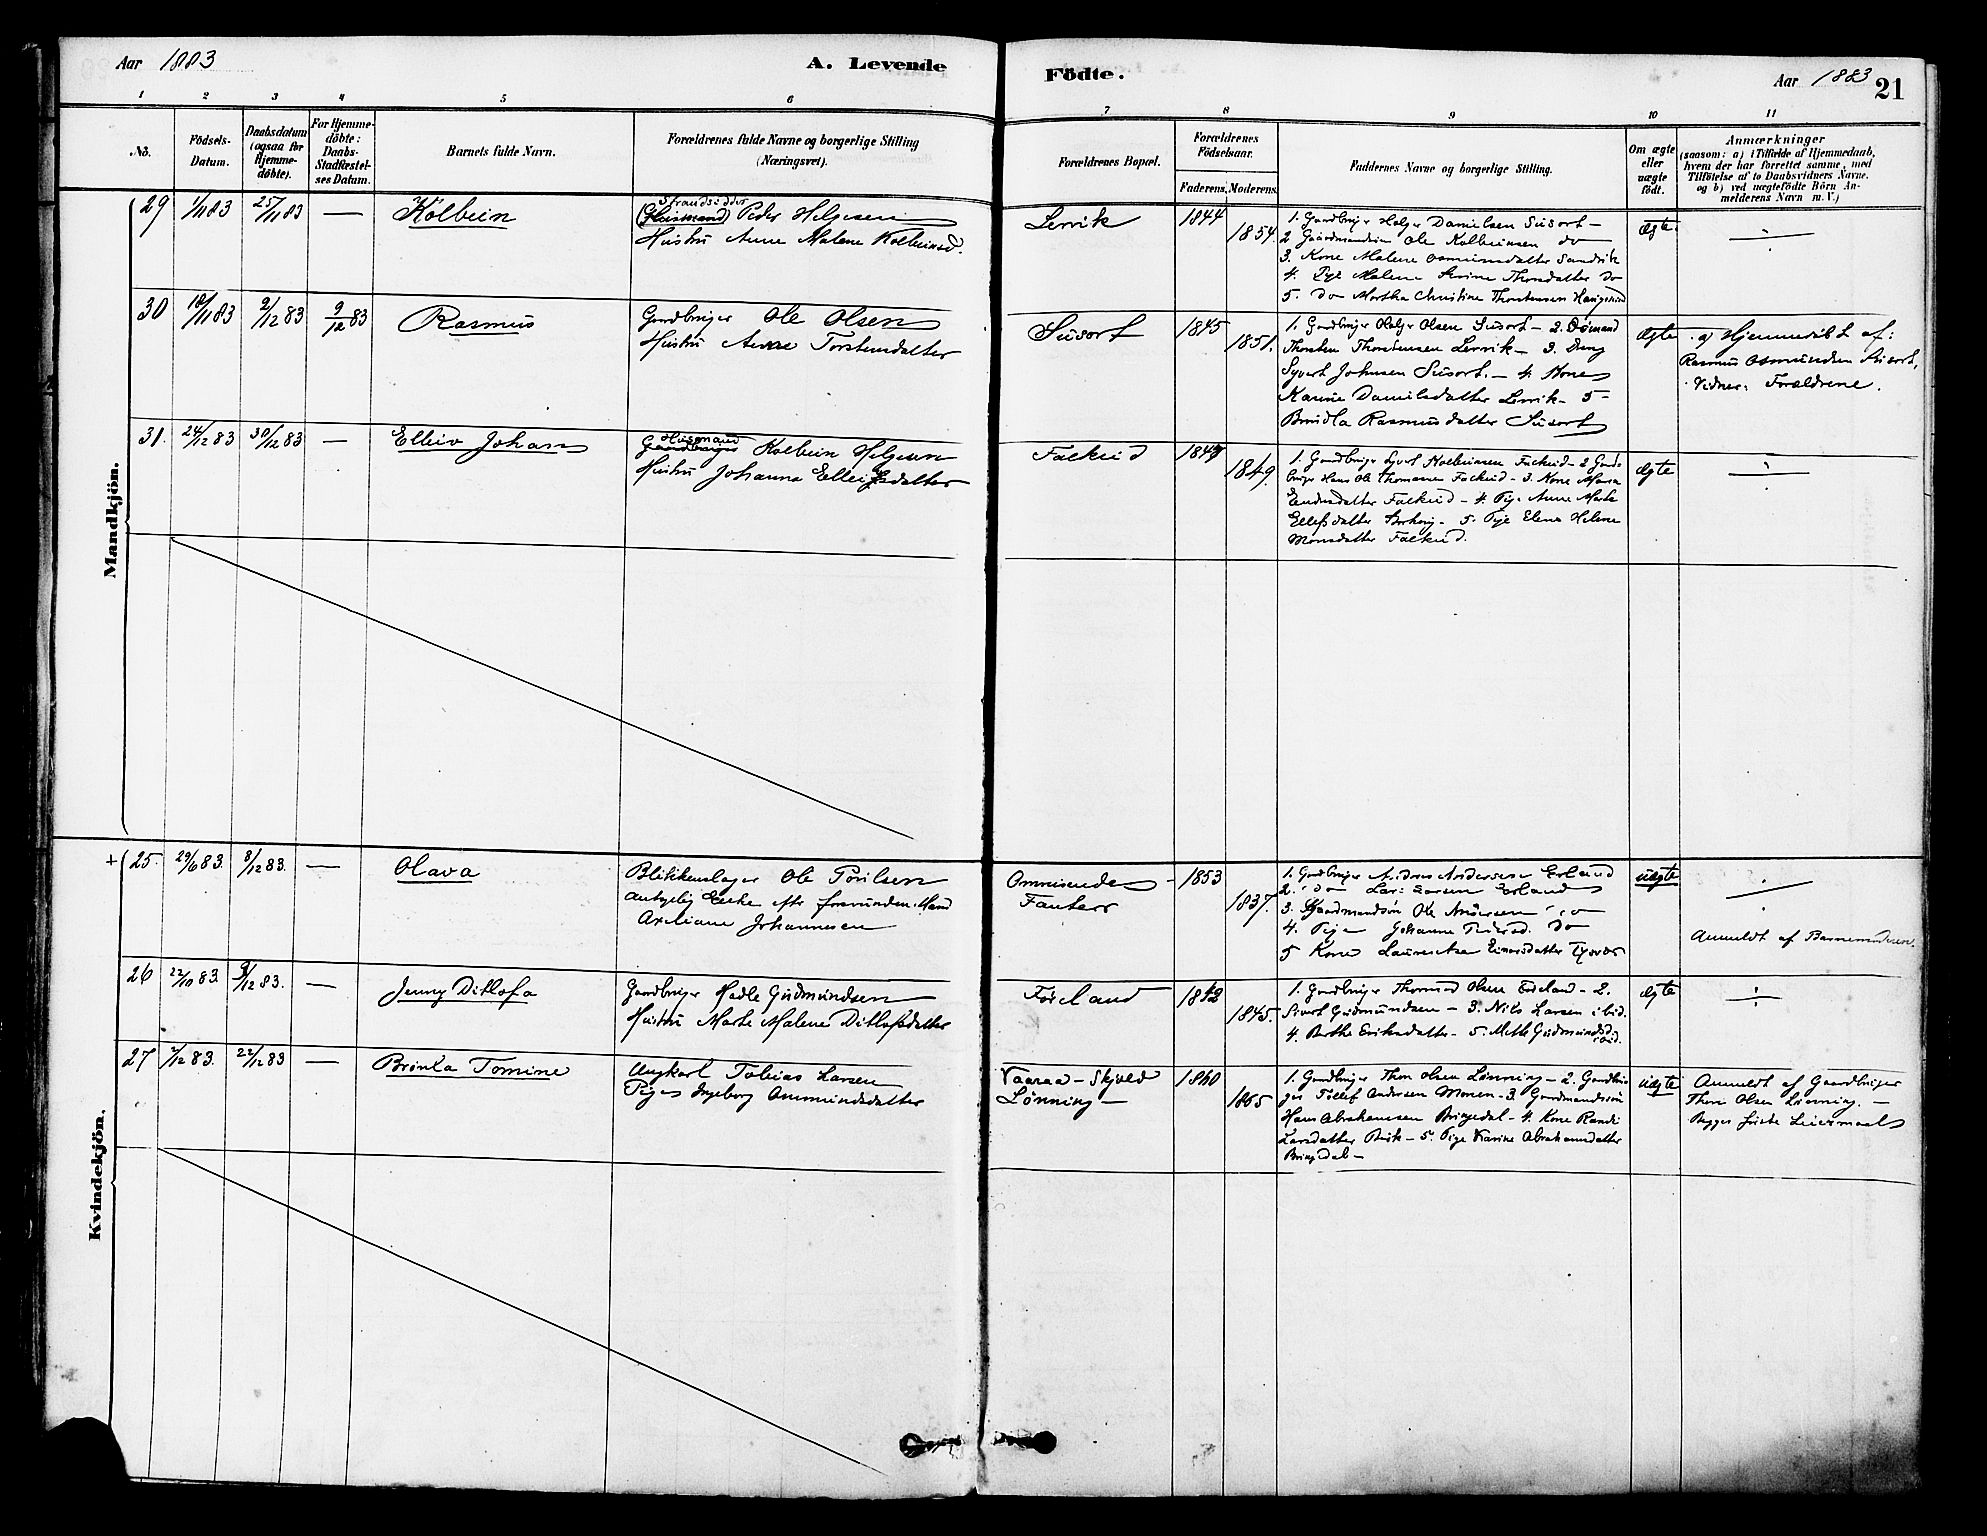 Aar 1883
A. Levende
Födte.
Aar 1883
21
1 2 3 4 5 6 7 8 9 10 11
No.
Födsels-
Datum.
Daabsdatum
(ogsaa for
Hjemme-
döbte).
For Hjemme-
döbte:
Daabs-
Stadfæstel-
ses Datum.
Barnets fulde Navn.
Forældrenes fulde Navne og borgerlige Stilling
(Næringsvei).
Forældrenes Bopæl.
Forældrenes
Födselsaar.
Faderens. Moderens.
Faddernes Navne og borgerlige Stilling.
Om ægte
eller
uægte
födt.
Anmærkninger
(saasom: a) i Tilfælde af Hjemmedaab,
hvem der har forrettet samme, med
Tilföielse af to Daabsvidners Navne.
og b) ved uægtefödte Börn An-
melderens Navn m. V.)
Mandkjön.
29 1/11 83 25/11 83 — Kolbein
Strandsidder
(Huusmand) Peder Helgesen
Hustru Anne Malene Kolbeinsd.
Lervik 1844 1854.
1. Gaardbruger Holger Danielsen Susort —
2 Gaardmandssøn Ole Kolbeinsen do
3. Kone Malene Osmundsdatter Sandvik
4. Pige Malene Serine Thorsdatter do
5. do Martha Christine Thorstensen Haugesund
Ægte. ÷
30 18/11 83 2/12 83 9/12 83 Rasmus
Gaardbruger Ole Olsen
Hustru Anne Torstensdatter
Susort 1845 1851.
1. Gaardbruger Holger Olsen Susort — 2.
Thorsten Thorstensen Lervik — 3. Dreng
Syvert Johnsen Susort. — 4. Kone
Karine Danielsdatter Lervik — 5
Brødla Rasmusdatter Susort
Ægte
a) Hjemmedøbt af:
Rasmus Osmundsen Susort,
Vidner: Forældrene.
31. 24/12 83 30/12 83 — Elleiv Johan
Husmand
Gaardbruger Kolbein Helgesen
Hustru Johanna Elleifsdatter
Falkeid 1849.
1. Gaardbruger Syvert Kolbeinsen Falkeid — 2 Gaard-
bruger Hans Ole Thomassen Falkeid — 3. Kone Maria
Endresdatter Falkeid — 4. Pige Anne Marthe
Ellefsdatter — 5. Pige Elena Helene
Monsdatter Falkeid.
Ægte ÷
Kvindekjön.
+ 25. 29/6 83. 8/12 83. — Olava
Blikkenslager Ole
Enke efter forsvunden Mand
Axeliane Johannesen
Omreisende
Fanter 1853 1837.
1. Gaardbruger Andreas Andersen Erland
2. do Lars Erland
3. Gaardmandssøn Ole Andersen do
4. Pige Johanne do
5 Kone Einarsdatter Tysvær
uægte ÷
Anmeldt af Barnemoderen.
26 22/10 83. 9/12 83. — Jenny Ditlofa
Gaardbruger Hadle Gudmundsen
Hustru Marte Malene Ditlofsdatter
Førland 1842 1845.
1. Gaardbruger Thomas Olsen — 2.
Sivert Gudmundsen — 3. Nils Larsen ibid.
4. Berthe Eriksdatter — 5. Mette Gudmundsd.
ibid.
Ægte ÷
27 2/12 83. 22/12 83 — Brinla Tomine
Ungkarl Tobias Larsen
Pige Ingeborg Ommundsdatter
Vaaraa — Skjold
Lønning — 1860 1865
1. Gaardbruger Thore Olsen Lønning — 2. Gaardbru-
ger Tollef Andersen — 3. Gaardmandssøn
Hans Abrahamsen Bringedal — 4. Kone Randi
Larsdatter — 5. Pige Karine Abrahamsdatter
Bringedal —
uægte
Anmeldt af Gaardbruger
Thore Olsen Lønning. —
Begges første Leiermaal